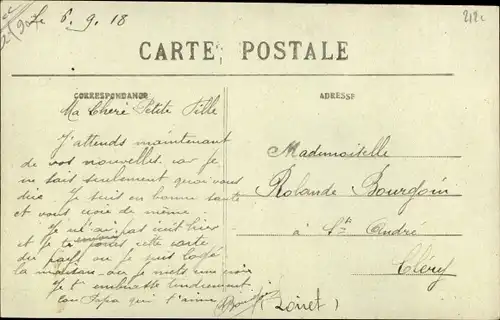 Le 6.9.18
212c
CARTE POSTALE
CORRESPONDANCE
ADRESSE
Ma Chere Petite Fille
J'attends maintenant
de vos nouvelles car je
ne sait seulement quoi vous
dire. Je suis en bonne santé
et vous crois de même.
Je n'ai pas écrit hier
et je te envoie cette carte
du pays ou je suis logé
la
Je t'embrasse tendrement
ton Papa qui t'aime
Mademoiselle
Rolande Bourgoin
à St André
Cléry
(Loiret)